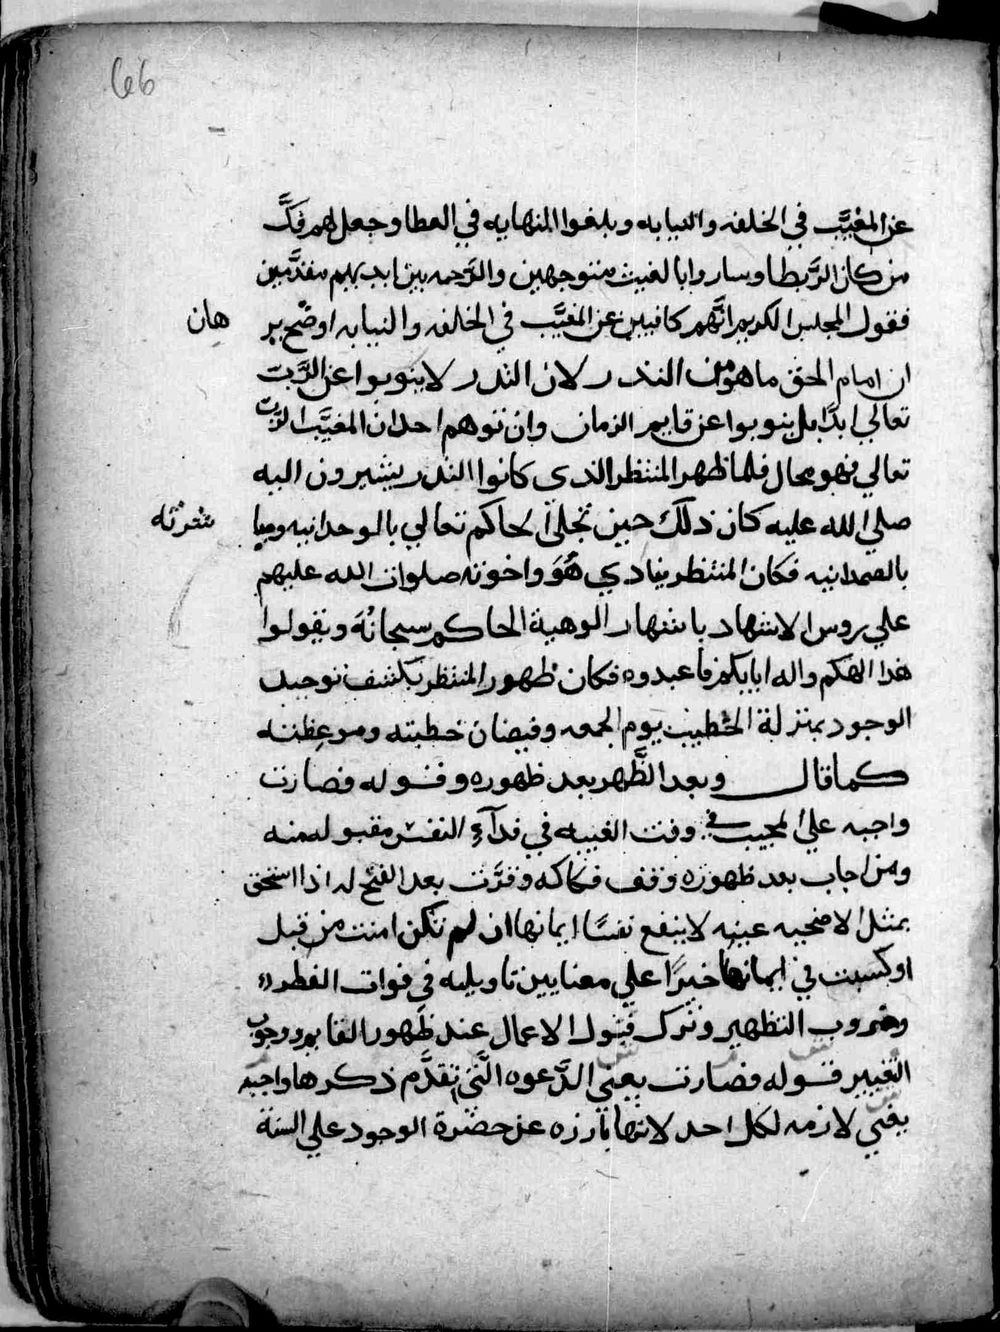 66
عن المغيَّب في الخلفه والنيابه وبلغوا النهايه في العطا وجعل لهم فكَّ
من كان الرَّبطا وساروا بالغيث متوجهين والرَّحمه بين ايديهم مقدَّمين
فقول المجلس الكريم انَّهم كافيين عن المغيَّب في الخلفه والنيابه اوضح بر
هان
ان امام الحق ما هو من الندر لان الندر لا ينوبوا عن الرَّب
تعالي ابدًا بل ينوبوا عن قايم الزمان وان توهم احد ان المغيَّب الرَّب
تعالي فهو محال فلما ظهر المنتظر الذى كانوا الندر يشيرون اليه
صلي الله عليه كان ذلك حين تجلي الحاكم تعالي بالوحدانيه
شرته
بالصمدانيه فكان المنتظر ينادي هُوَ واخوته صلوات الله عليهم
علي روس الاشهاد باشتهار الوهية الحاكم سبحانُهَ ويقولوا
هدا الهكم واله ابايكم فاعبدوه فكان ظهور المنتظر بكشف توحيد
الوجود بمنزلة الخطيب يوم الجمعه وفيضان خطبته وموعظته
كما قال وبعد الظَّهر بعد ظهوره وقوله فصارت
واجبه علي المجيب في وقت الغيبه في فدآء النفس مقبوله منه
ومن اجاب بعد ظهوره وقف فكاكه وقرَّت بعد الفتح له اذا استحق
بمثل الاضحيه عينه لا ينفع نفسًا ايمانها ان لم تكن امنت من قبل
او كسبت في ايمانها خيرًا علي معنايين تاويليه في فوات الفطر
وضروب التظهير وترك قبول الاعمال عند ظهور القايم ووجوب
التغيير قوله فصارت يعني الدَّعوه الَّتي تقدَّم ذكرها واجبه
يعني لازمه لكل احد لانها بارزه عن حضرة الوجود علي السنة